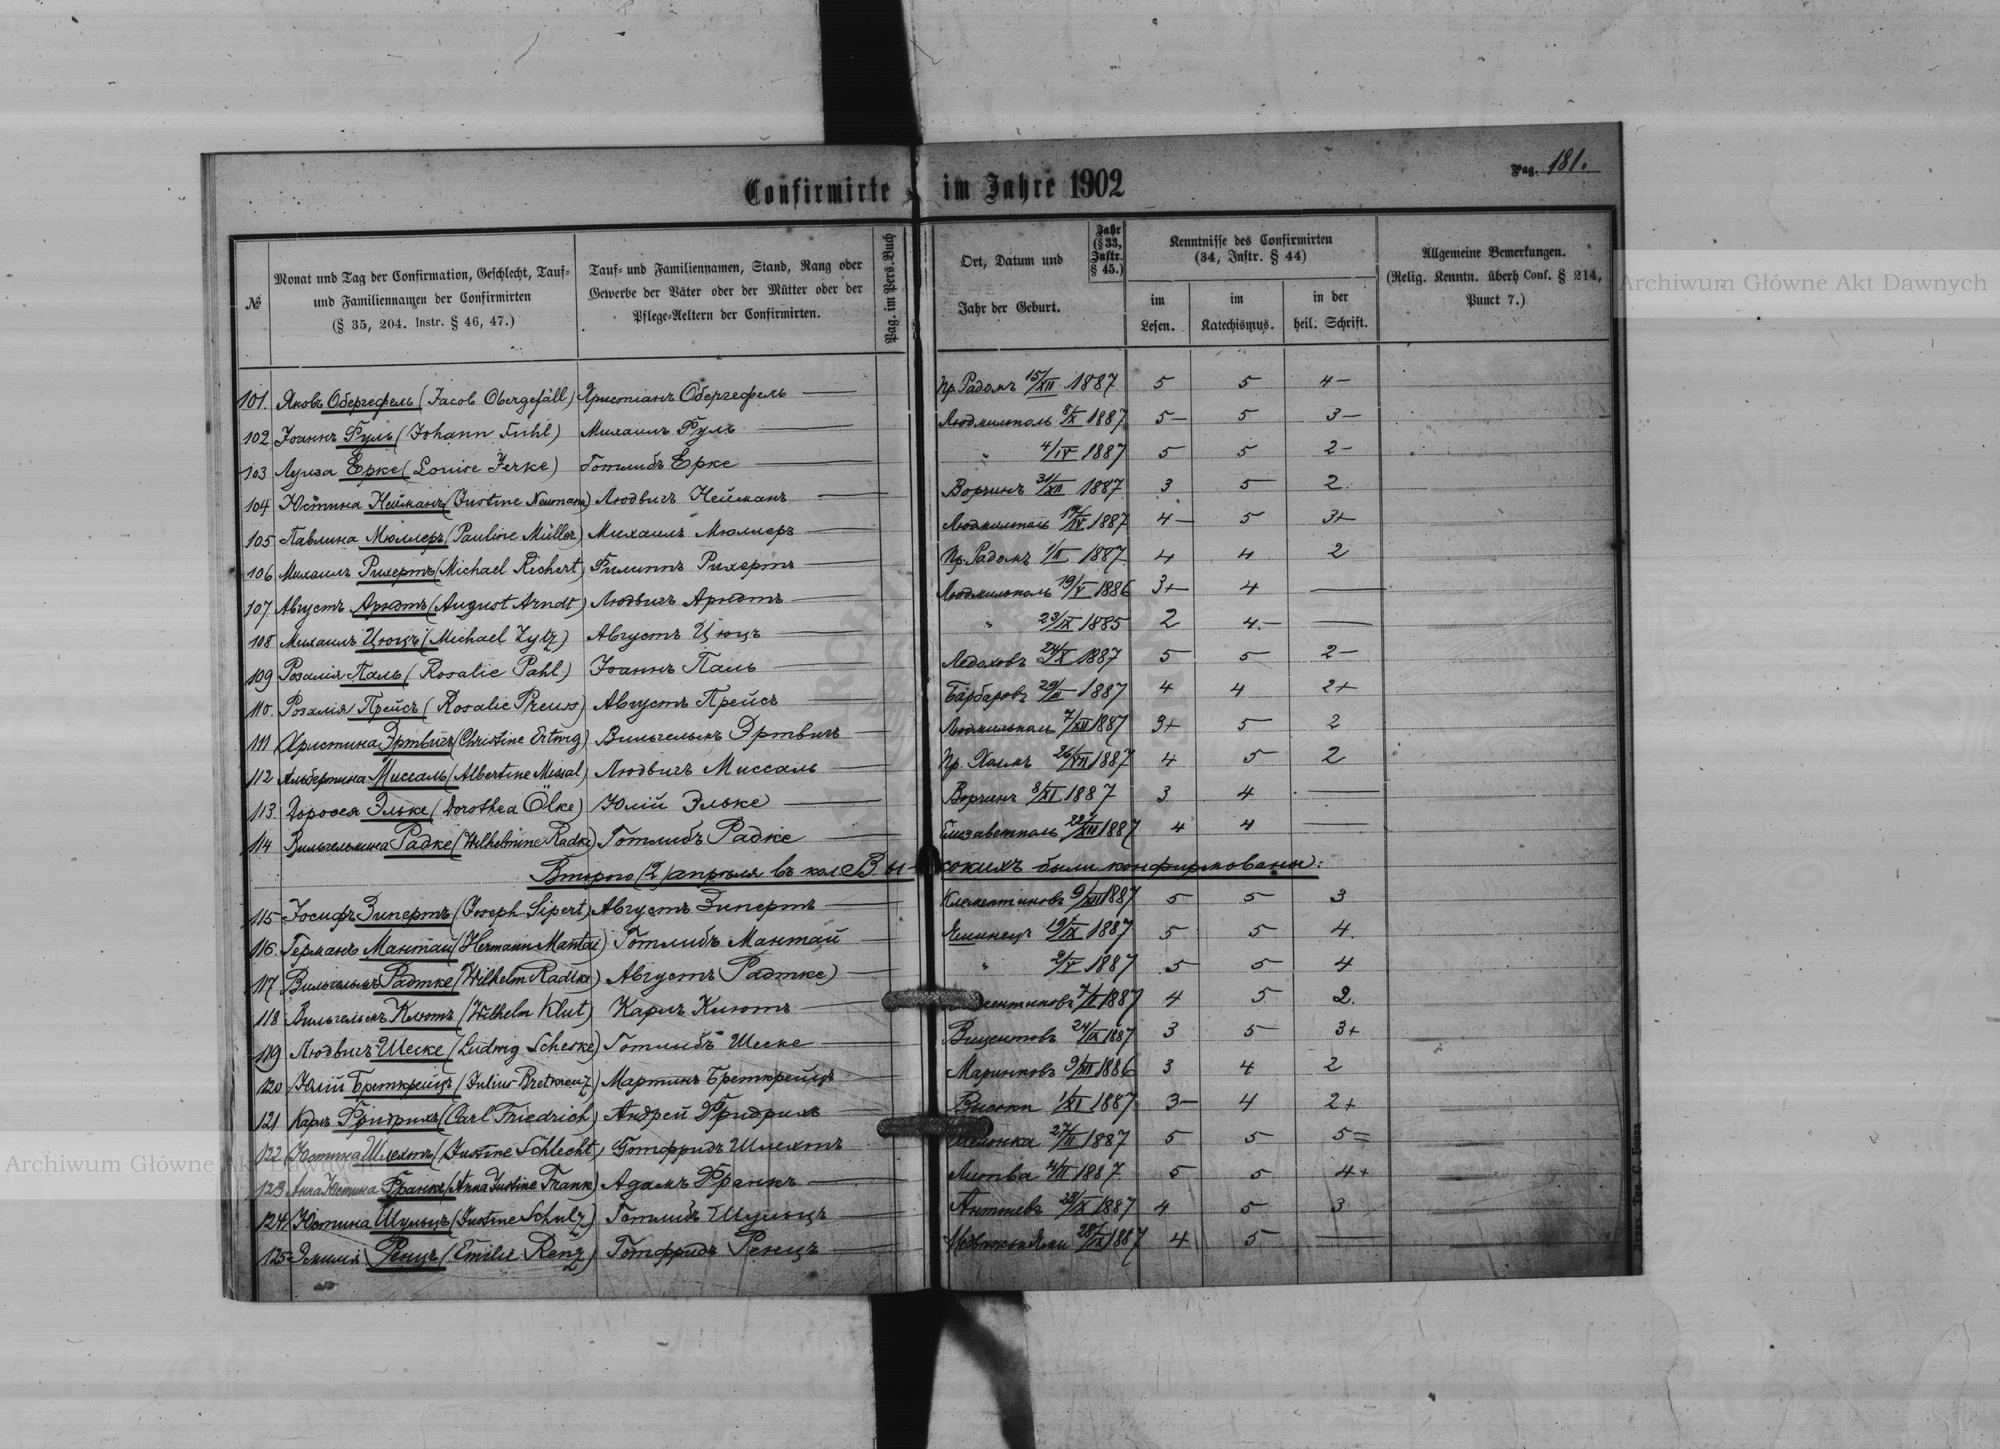 Confirmirte im Jahre 1902
Pag. 181.
№
Monat und Tag der Confirmation, Geschlecht, Tauf-
und Familiennamen der Confirmirten
(§ 35, 204. Instr. § 46, 47.)
Tauf- und Familiennamen, Stand, Rang oder
Gewerbe der Väter oder der Mütter oder der
Pflege-Aeltern der Confirmirten.
Pag. im Pers.Buch
Ort, Datum und
Jahr der Geburt.
Jahr
(§ 33,
Instr.
§ 45.)
Kenntnisse des Confirmirten
(34, Instr. § 44)
im
Lesen.
im
Katechismus.
in der
heil. Schrift.
Allgemeine Bemerkungen.
(Relig. Kenntn. überh Conf. § 214,
Punct 7.)
101. Яковъ Обергефель (Jacob Obergefäll) Христіанъ Обергефель — Пр. Радомъ 15/XII 1887 5 5 4-
102 Іоаннъ Фуль (Johann Fuhl) Михаилъ Фуль — Людмильполь 8/X 1887 5- 5 3-
103 Луиза Ерке (Louise Jerke) Готлибъ Ерке — " 4/IV 1887 5 5 2-
104 Юстина Нейманъ (Justine Neumann) Людвигъ Нейманъ — Ворчинъ 31/XII 1887 3 5 2
105 Павлина Мюллеръ (Pauline Müller) Михаилъ Мюллеръ — Людмильполь 1887 4- 5 3+
106 Михаилъ Рихертъ (Michael Richert) Филиппъ Рихертъ — Пр. Радомъ 1/II 1887 4 4 2
107 Августъ Арндтъ (August Arndt) Людвигъ Арндтъ — Людмильполь 19/V 1886 3+ 4 —
108 Михаилъ Цюцъ (Michael Zytz) Августъ Цюцъ — " 23/IX 1885 2 4.- —
109 Розалія Паль (Rosalie Pahl) Іоаннъ Паль — Ледаховъ 24/X 1887 5 5 2-
110. Розалія Прейсъ (Rosalie Preuss) Августъ Прейсъ Барбаровъ 1887 4 4 2+
111 Христина Эртвигъ (Christine Ertwig) Вильгельмъ Эртвигъ — Людмильполь 7/XII 1887 3+ 5 2
112 Альбертина Миссаль (Albertine Missal) Людвигъ Миссаль — Пр. Холмъ 26/VII 1887 4 5 2
113. Доротея Эльке (Dorothea Ölke) Юлій Эльке — Ворчинъ 8/XI 1887 3 4 —
114 Вильгельмина Радке (Wilhelmine Radke) Готлибъ Радке — Елизаветполь 22/XII 1887 4 4 —
Второго (2) апрѣля въ кол. Высокихъ были конфирмованы:
115 Іосифъ Зипертъ (Joseph Sipert) Августъ Зипертъ — Клементиновъ 9/XII 1887 5 5 3
116. Германъ Мантай (Hermann Mantai) Готлибъ Мантай — 19/IX 1887 5 5 4.
117 Вильгельмъ Радтке (Wilhelm Radtke) Августъ Радтке — " 2/V 1887 5 5 4
118 Вильгельмъ Клютъ (Wilhelm Klut) Карлъ Клютъ — 1887 4 5 2.
119 Людвигъ Шеске (Ludwig Scheske) Готлибъ Шеске — Вицентовъ 24/IX 1887 3 5 3+
120 Юлій Бреткрейцъ (Julius Bretkreuz) Мартинъ Бреткрейцъ — Маринковъ 1886 3 4 2
121 Карлъ Фридрихъ (Carl Friedrich) Андрей Фридрихъ — 1/XI 1887 3- 4 2+
122 Юстина Шлехтъ (Justine Schlecht) Готфридъ Шлехтъ 27/II 1887 5 5 5=
123 Анна Юстина Франкъ (Anna Justine Frank) Адамъ Франкъ — Литва 1887. 5 5 4+
124 Юстина Шульцъ (Justine Schulz) Готлибъ Шульцъ — 1887 4 5 3
125 Эмилія Ренцъ (Emilie Renz) Готфридъ Ренцъ — 1887 4 5 —
Archiwum Główne Akt Dawnych
Archiwum Główne Akt Dawnych